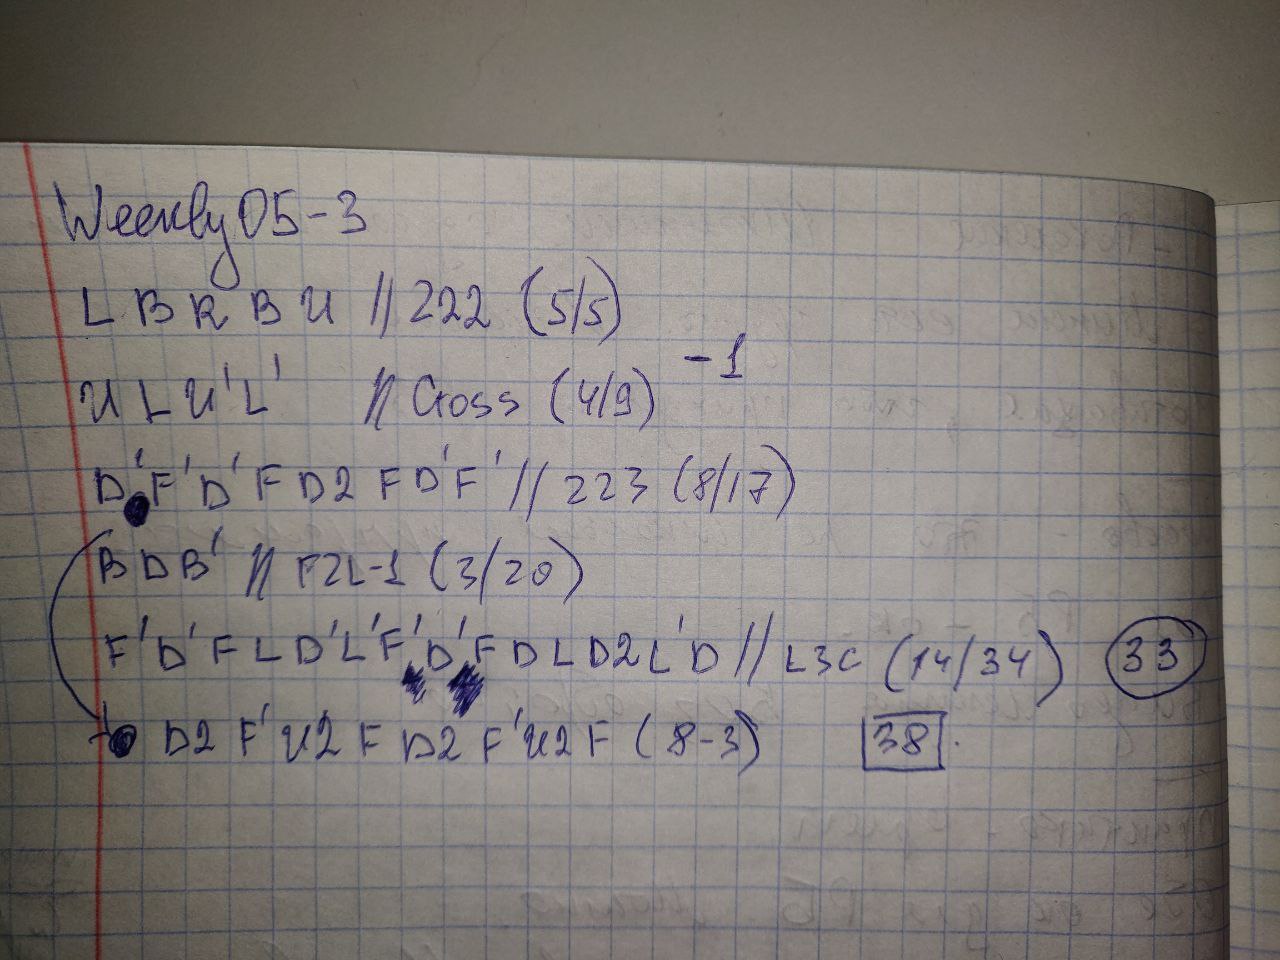 Weekly 05-3
L B R B U // 222 (5/5)
U L U' L' // Cross (4/9) -1
D' F' D' F D2 F D' F' // 223 (8/17)
B D B' // F2L-1 (3/20)
F' D' F L D' L' F' D' F D L D2 L' D // L3C (14/34) 33
D2 F' U2 F D2 F' U2 F (8-3) 38.